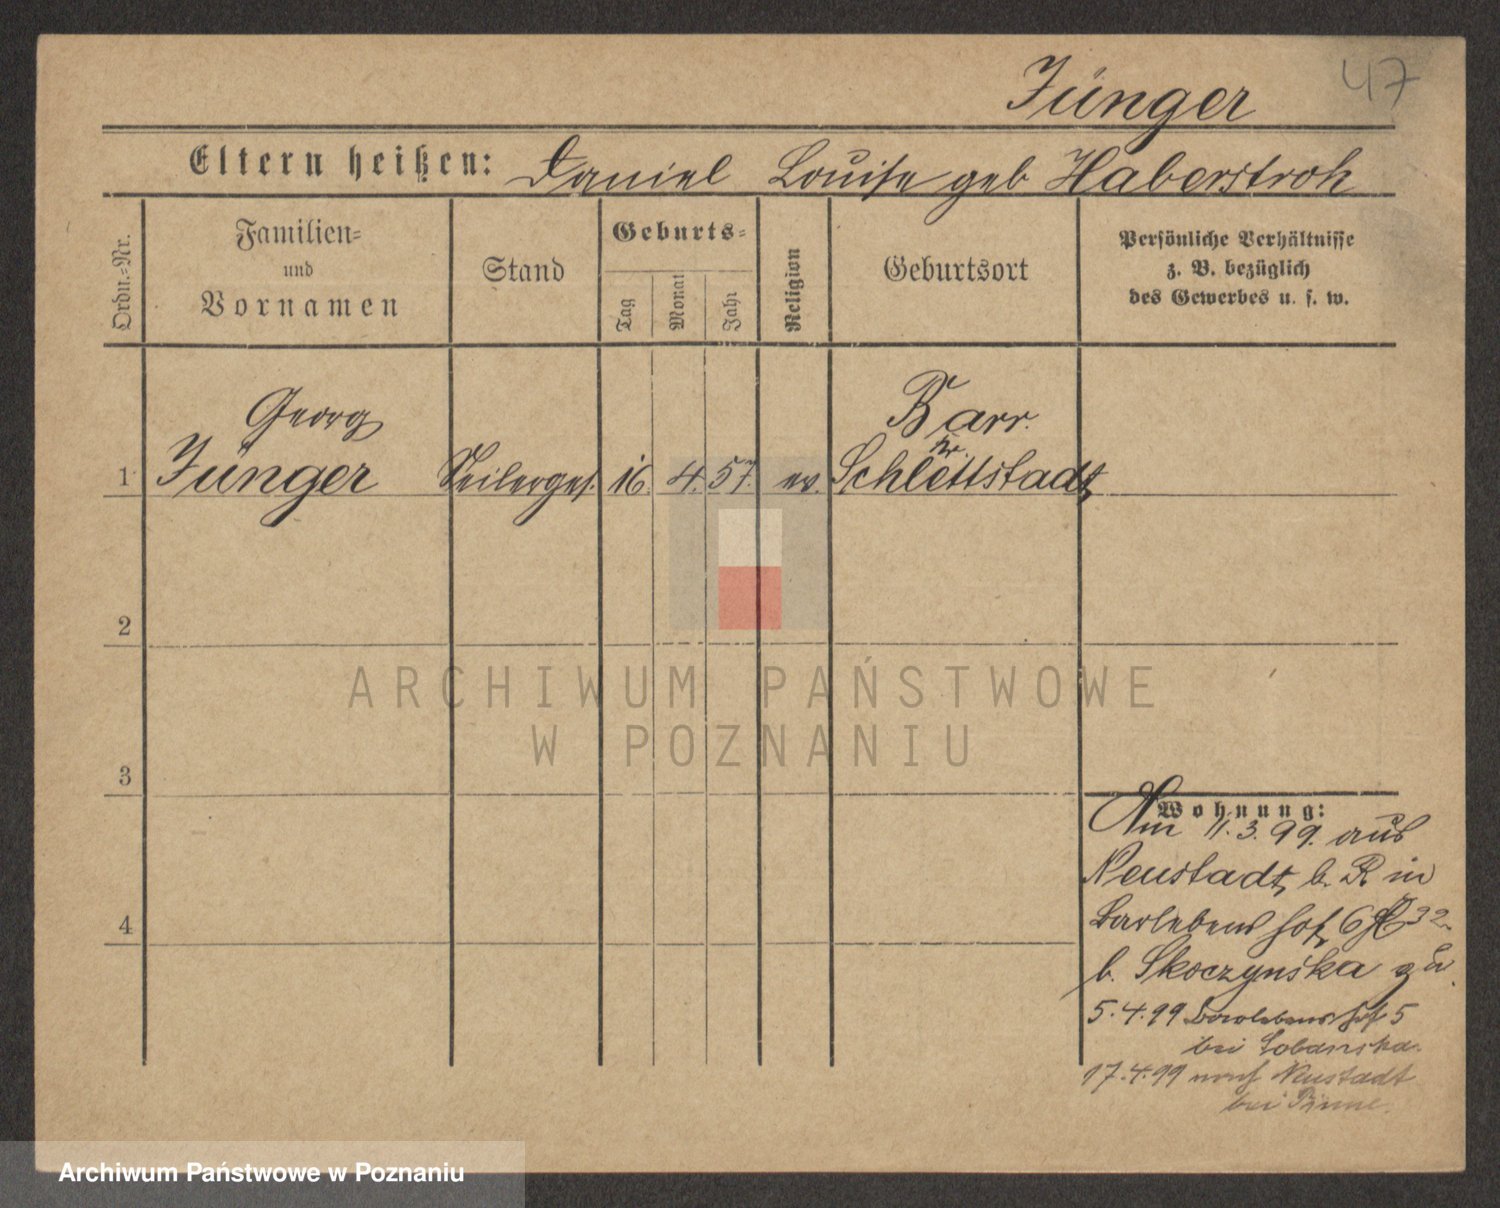 47
Jünger
Eltern heißen: Daniel Louise geb Haberstroh
Ordn.-Nr.
Familien-
und
Vornamen
Stand
Geburts-
Tag
Monat
Jahr
Religion
Geburtsort
Persönliche Verhältnisse
z. B. bezüglich
des Gewerbes u. s. w.
Georg
Barr.
Kr.
1 Jünger Seilerges. 16. 4. 57. ev. Schlettstadt
2
3
4
Wohnung:
Am 11.3.99. aus
Neustadt b. P. in
Barlebens hof 6 32
b. Skoczynska zu.
5.4.99 Barlebens hof 5
bei Lobanska
17.4.99 nach Neustadt
bei Pinne.
ARCHIWUM PAŃSTWOWE
W POZNANIU
Archiwum Państwowe w Poznaniu